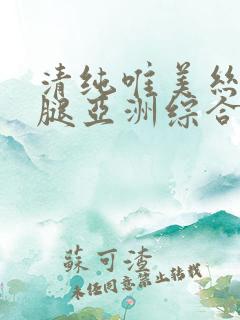 清纯唯美丝
腿亚洲综合
蘇可渣
未经同意禁止转载